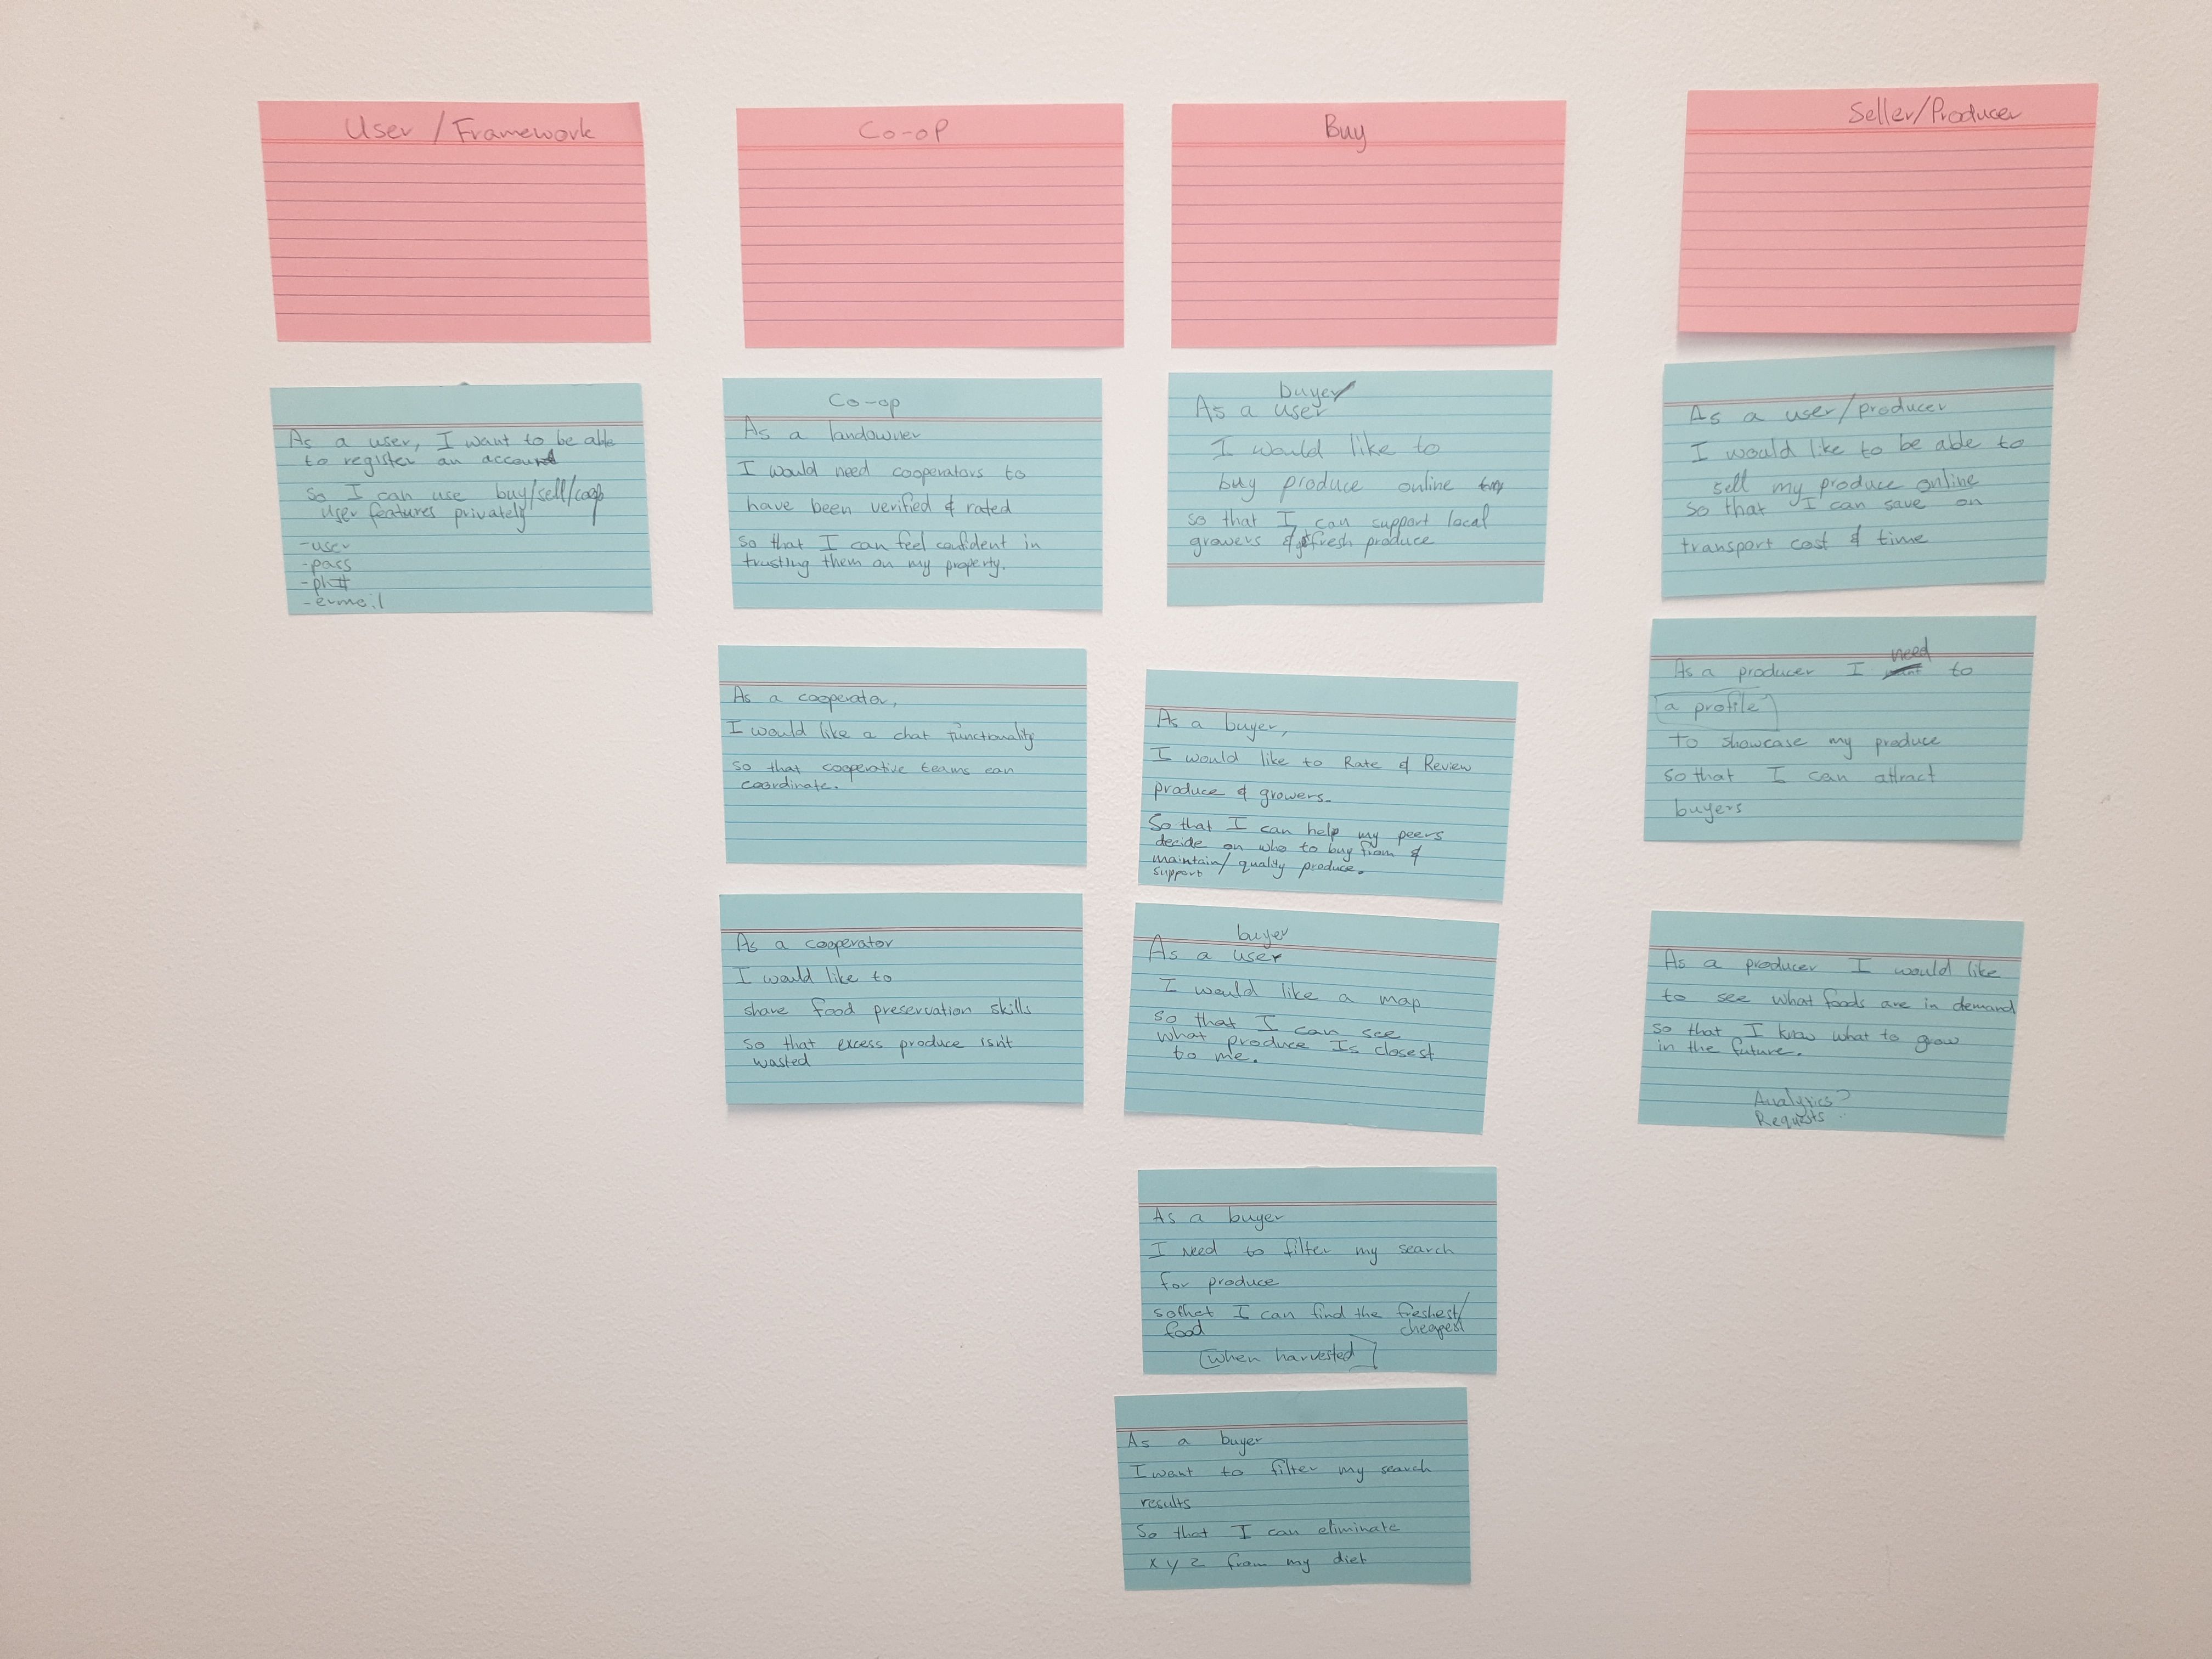 User / Framework
As a user, I want to be able
to register an account
So I can use buy/sell/coop
user features privately
-user
-pass
-ph#
-email
Co-op
Co-op
As a landowner
I would need cooperators to
have been verified & rated
so that I can feel confident in
trusting them on my property.
As a cooperator,
I would like a chat functionality
so that cooperative teams can
coordinate.
As a cooperator
I would like to
share food preservation skills
so that excess produce isn't
wasted
Buy
buyer
As a user
I would like to
buy produce online
so that I can support local
growers & fresh produce
As a buyer,
I would like to Rate & Review
produce & growers.
So that I can help my peers
decide on who to buy from &
maintain/ quality produce.
support
buyer
As a user
I would like a map
so that I can see
what produce Is closest
to me.
As a buyer
I need to filter my search
for produce
so that I can find the freshest/
food cheapest
[when harvested]
As a buyer
I want to filter my search
results
So that I can eliminate
x y z from my diet
Seller/Producer
As a user/producer
I would like to be able to
sell my produce online
so that I can save on
transport cost & time
need
As a producer I want to
a profile
to showcase my produce
so that I can attract
buyers
As a producer I would like
to see what foods are in demand
so that I know what to grow
in the future.
Analytics?
Requests